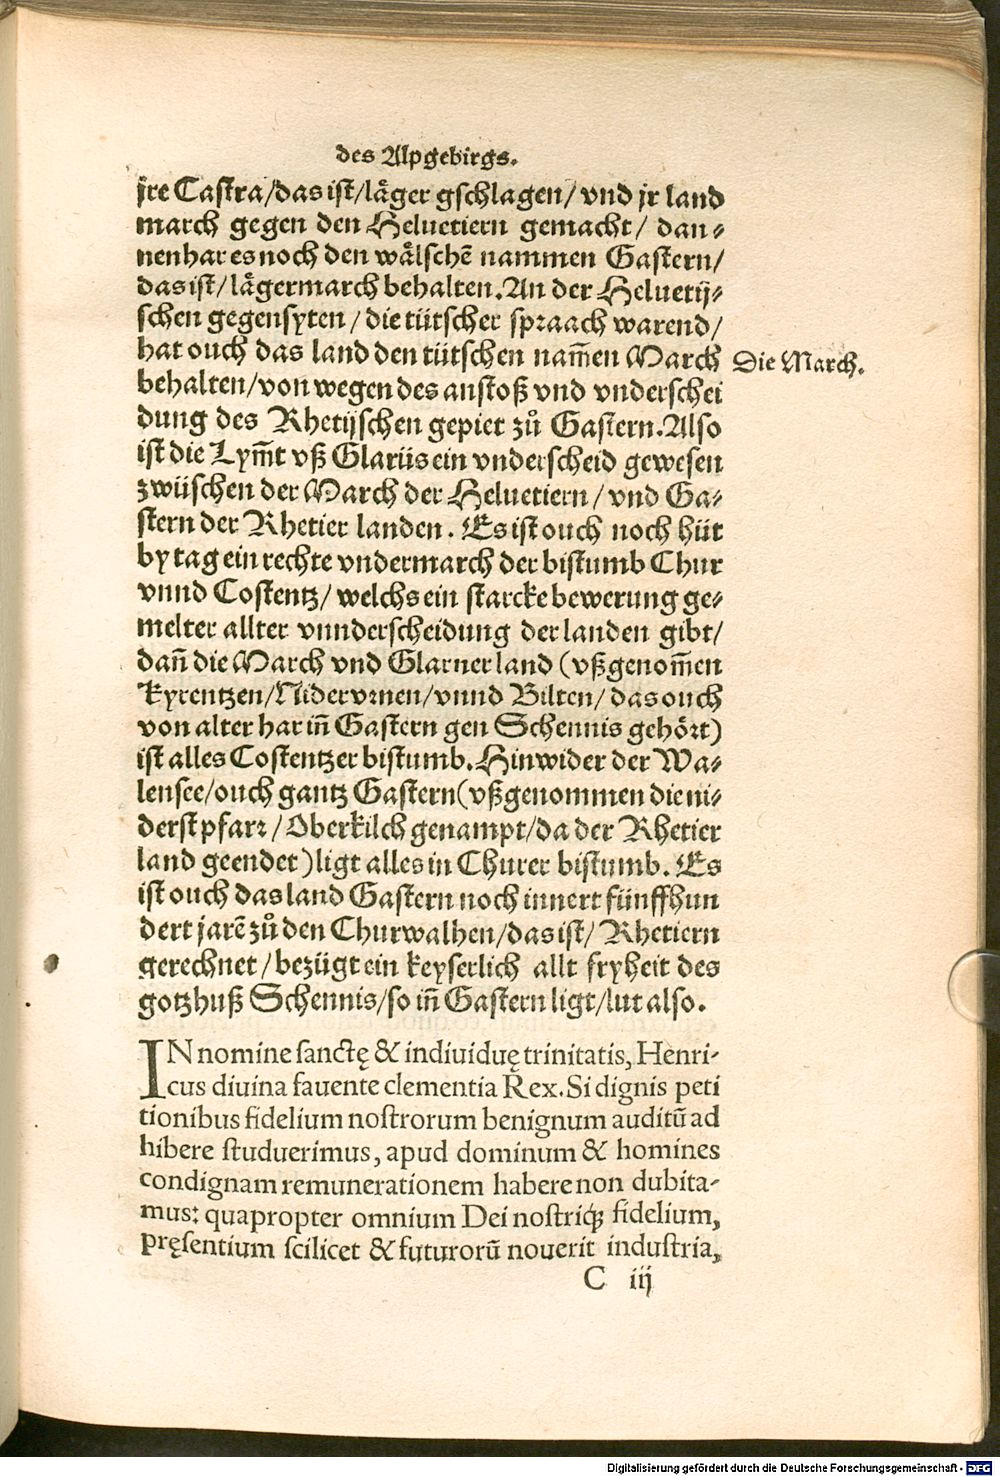 des Alpgebirgs.
jre Castra/das ist/läger gschlagen/ vnd jr land
march gegen den Heluetiern gemacht/ dan⸗
nenhar es noch den wälschē nammen Gastern/
das ist/ lägermarch behalten. An der Heluetij⸗
schen gegensyten/ die tütscher spraach warend/
hat ouch das land den tütschen nam̄en March
Die March.
behalten/ von wegen des anstoß vnd vnderschei
dung des Rhetijschen gepiet zů Gastern. Also
ist die Lym̄t vß Glarüs ein vnderscheid gewesen
zwüschen der March der Heluetiern/ vnd Ga⸗
stern der Rhetier landen. Es ist ouch noch hüt
by tag ein rechte vndermarch der bistumb Chur
vnnd Costentz/ welchs ein starcke bewerung ge⸗
melter allter vnnderscheidung der landen gibt/
dañ die March vnd Glarner land (vßgenom̄en
Kyrentzen/ Nidervrnen/ vnnd Bilten/ das ouch
von alter har iñ Gastern gen Schennis gehört)
ist alles Costentzer bistumb. Hinwider der Wa⸗
lensee/ ouch gantz Gastern (vßgenommen die ni⸗
derst pfarr/ Oberkilch genampt/ da der Rhetier
land geendet) ligt alles in Churer bistumb. Es
ist ouch das land Gastern noch innert fünffhun
dert jarē zů den Churwalhen/ das ist/ Rhetiern
gerechnet/ bezügt ein keyserlich allt fryheit des
gotzhuß Schennis/ so iñ Gastern ligt/ lut also.
IN nomine sanctę & indiuiduę trinitatis, Henri-
cus diuina fauente clementia Rex. Si dignis peti
tionibus fidelium nostrorum benignum auditū ad
hibere studuerimus, apud dominum & homines
condignam remunerationem habere non dubita-
mus: quapropter omnium Dei nostriq́; fidelium,
pręsentium scilicet & futurorū nouerit industria,
C iij
Digitalisierung gefördert durch die Deutsche Forschungsgemeinschaft - DFG